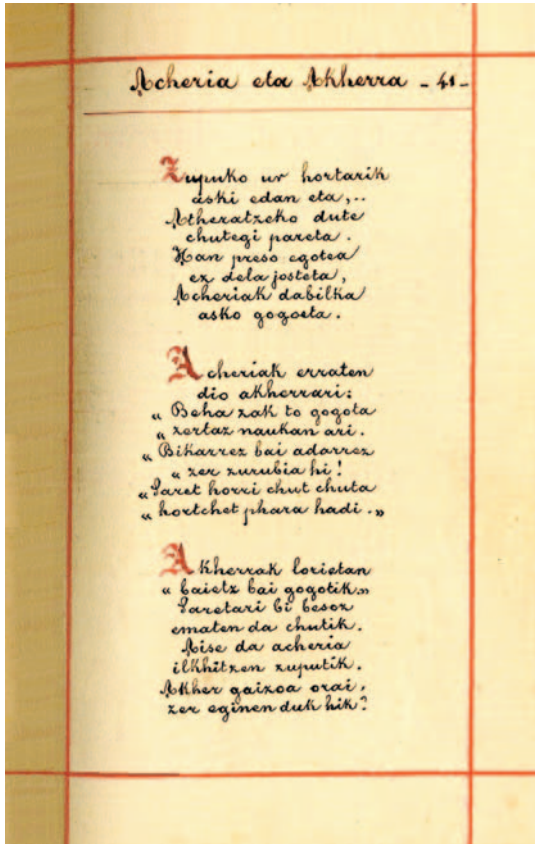 Acheria eta Akherra - 41 -
Zupuko ur hortarik
aski edan eta,..
Atheratzeko dute
chutegi pareta.
Han preso egotea
ez dela josteta,
Acheriak dabilka
asko gogoeta.
Acheriak erraten
dio akherrari:
" Beha zak to gogota
" zertaz naukan ari.
" Bikarrez bai adarrez
" zer zurubia hi!
" Paret horri chut chuta
" hortchet phara hadi. "
Akherrak lorietan
" baietz bai gogotik"
Paretari bi besoz
ematen da chutik.
Aise da acheria
ilkhitzen zuputik.
Akher gaizoa orai,
zer eginen duk hik?